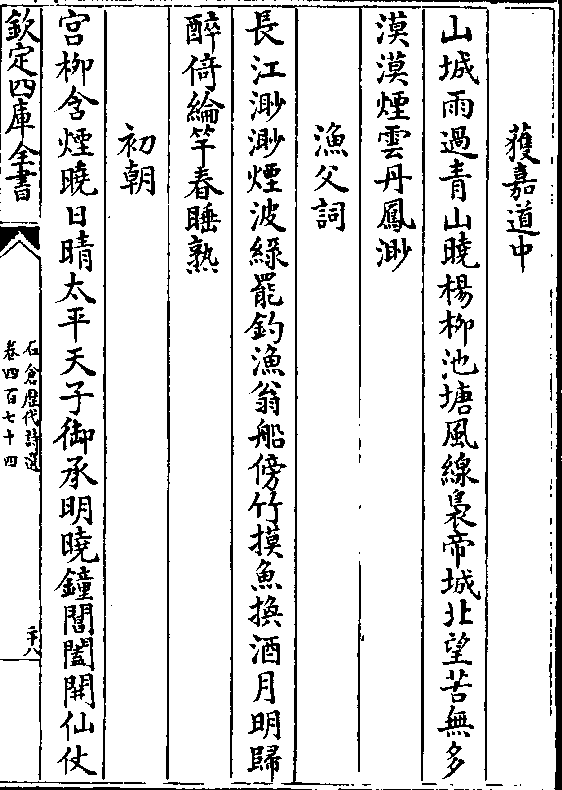 獲嘉道中
山城雨過青山曉楊柳池塘風線裊帝城北望苦無多
漠漠煙雲丹鳳渺
漁父詞
長江渺渺煙波綠罷釣漁翁船傍竹摸魚換酒月明歸
醉倚綸竿春睡熟
初朝
宫柳含煙曉日晴太平天子御承明曉鐘閶闔開仙仗
欽定四庫全書
石倉歷代詩選
卷四百七十四
二十八